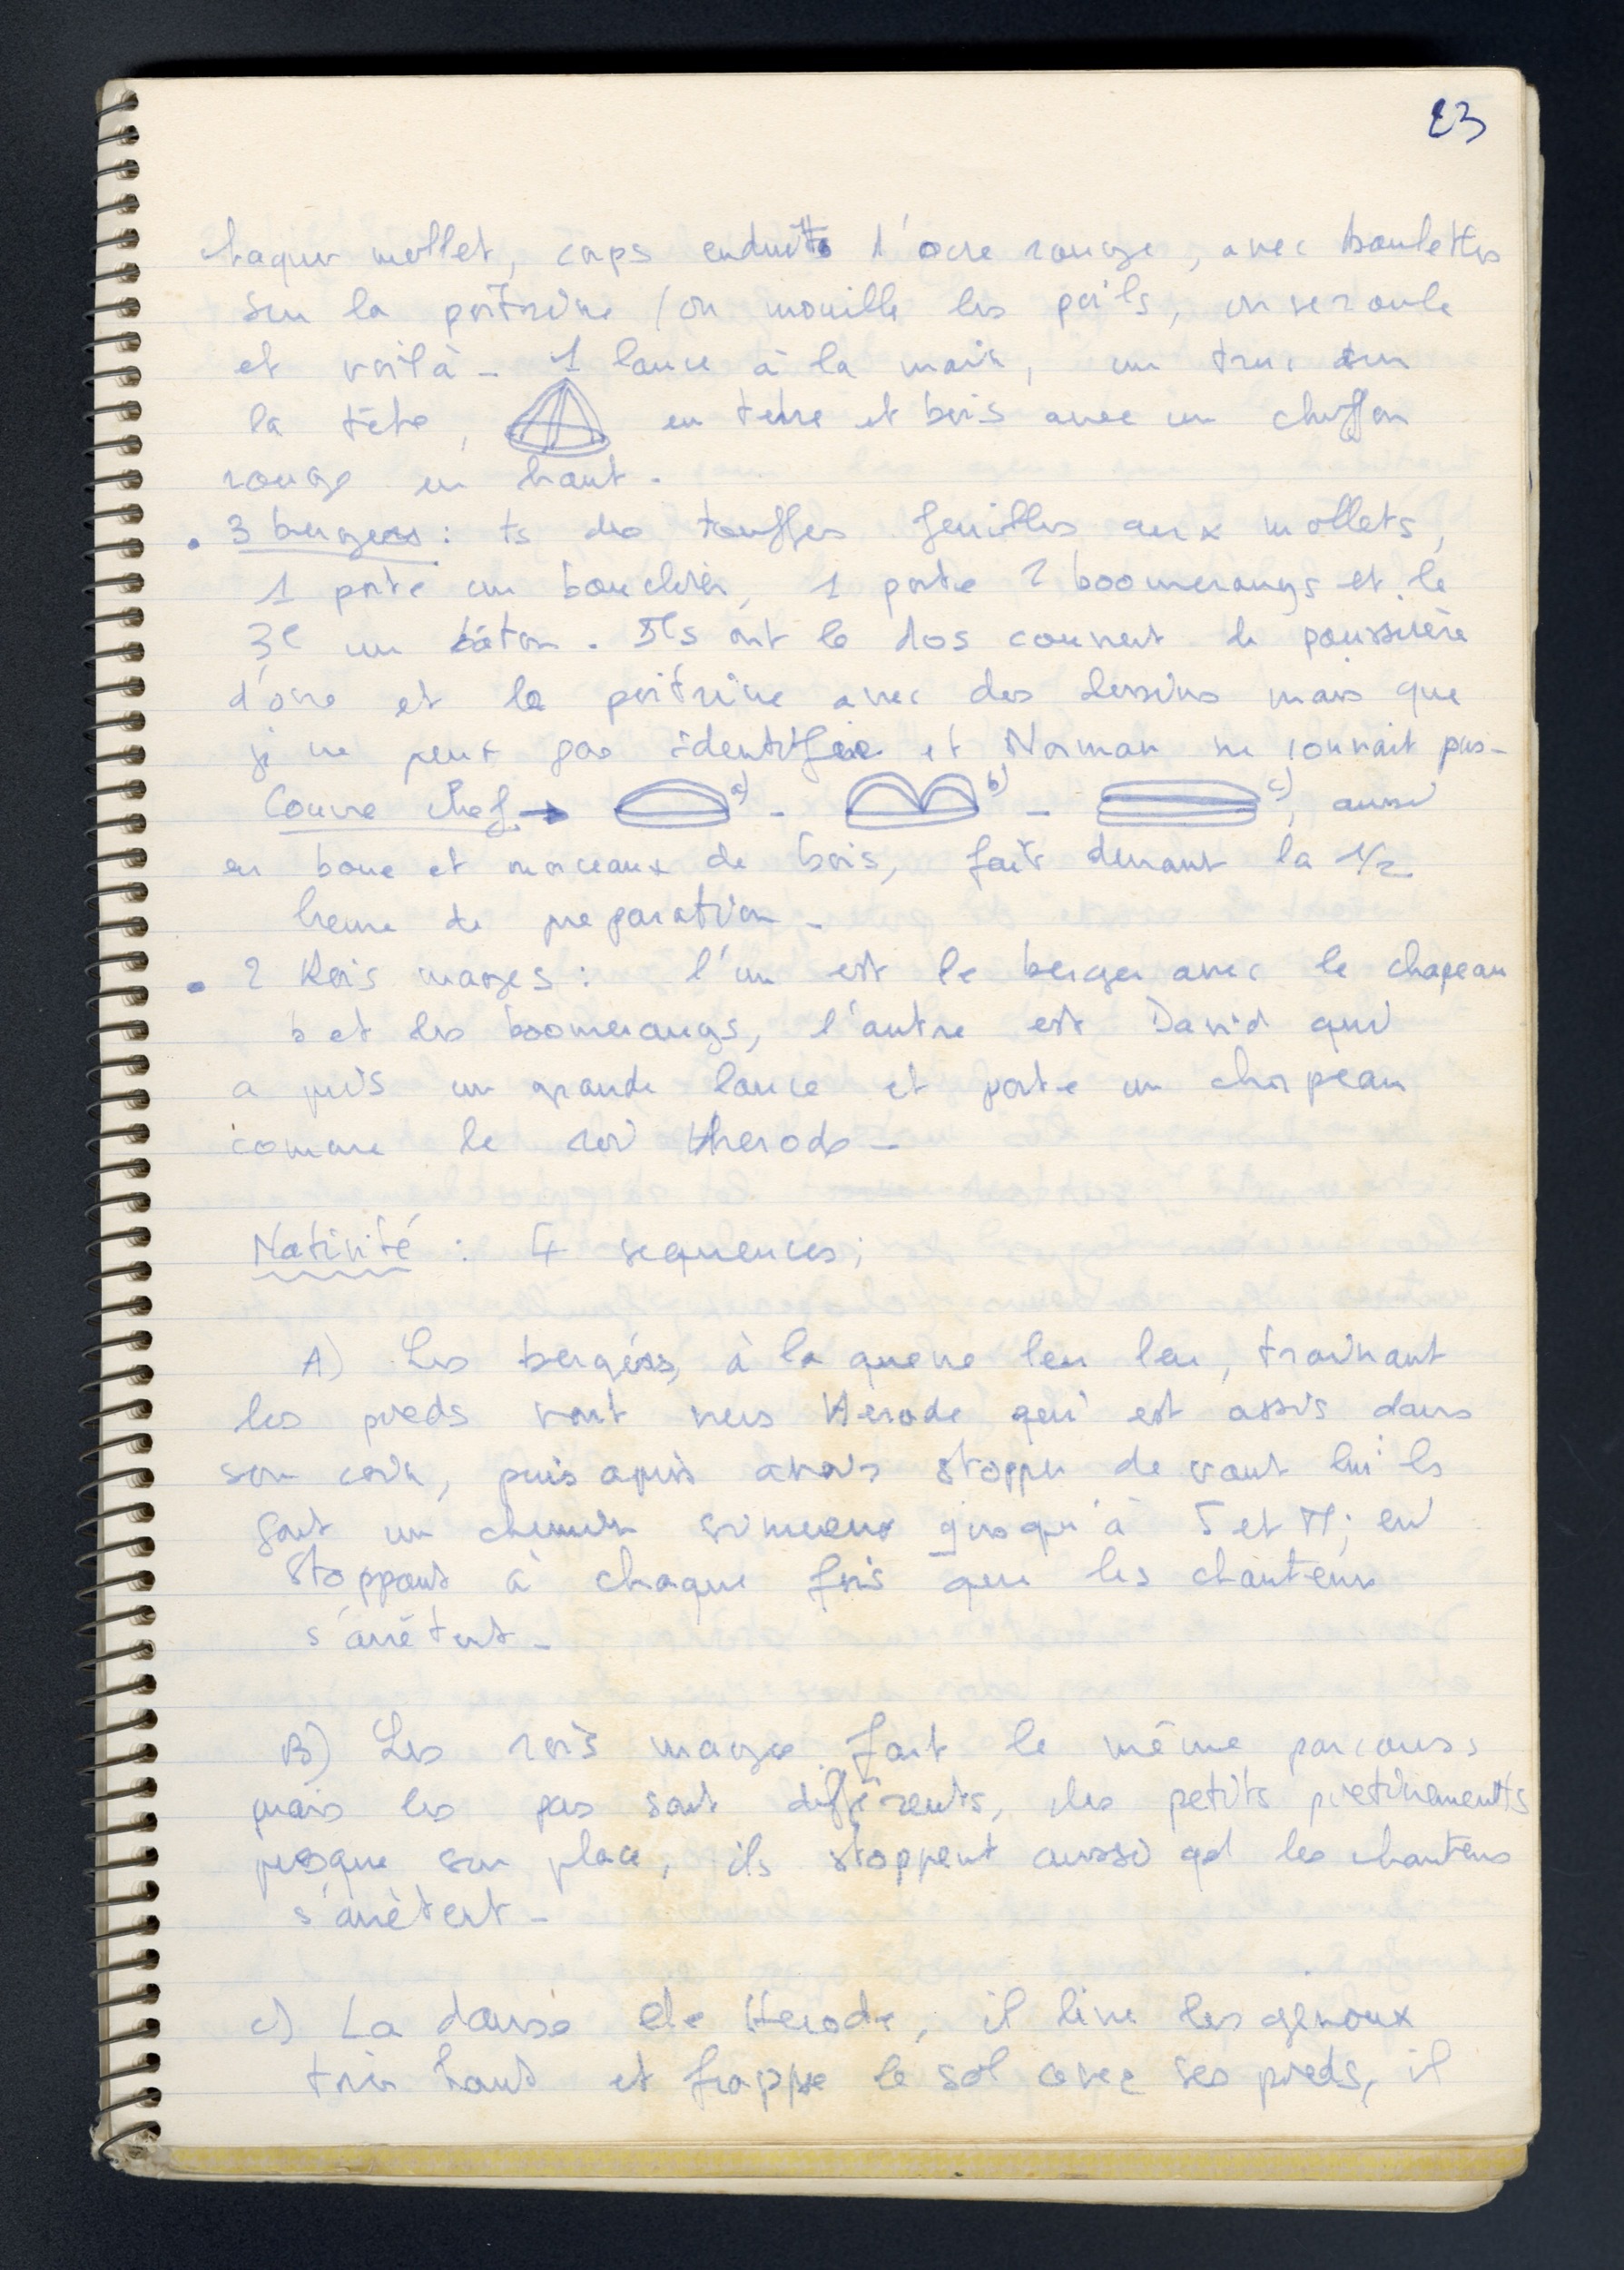 23
chaque mollet, corps enduits d'ocre rouge, avec boulettes
sur la poitrine (on mouille les poils, on se roule
et voilà - 1 lance à la main, un truc sur
la tête, en terre et bois avec un chiffon
rouge en haut.
. 3 bergers : ts des touffes feuilles aux mollets,
1 porte un bouclier, 1 porte 2 boomerangs et le
3e un bâton. Ils ont le dos couvert de poussière
d'ocre et la poitrine avec des dessins mais que
je ne peux pas identifier et Norman ne connait pas -
Couvre chef → a) - b) - c), aussi
en boue et morceaux de bois, fait durant la 1/2
heure de preparation -
. 2 Rois mages : l'un est le berger avec le chapeau
b et les boomerangs, l'autre est David qui
a pris un grande lance et porte un chapeau
comme le roi Herode -
Nativité : 4 sequences ;
A) Les bergers, à la queue leu leu, trainant
les pieds vont vers Herode qui est assis dans
son coin, puis après avoir stopper devant lui ils
font un chemin sinueux jusqu'à J et M ; en
stoppant à chaque fois que les chanteurs
s'arrêtent -
B) Les rois mages font le même parcours
mais les pas sont différents, des petits pietinements
presque sur place, ils stoppent aussi qd les chanteurs
s'arrêtent -
c) La danse de Herode, il lève les genoux
très haut et frappe le sol avec ses pieds, il